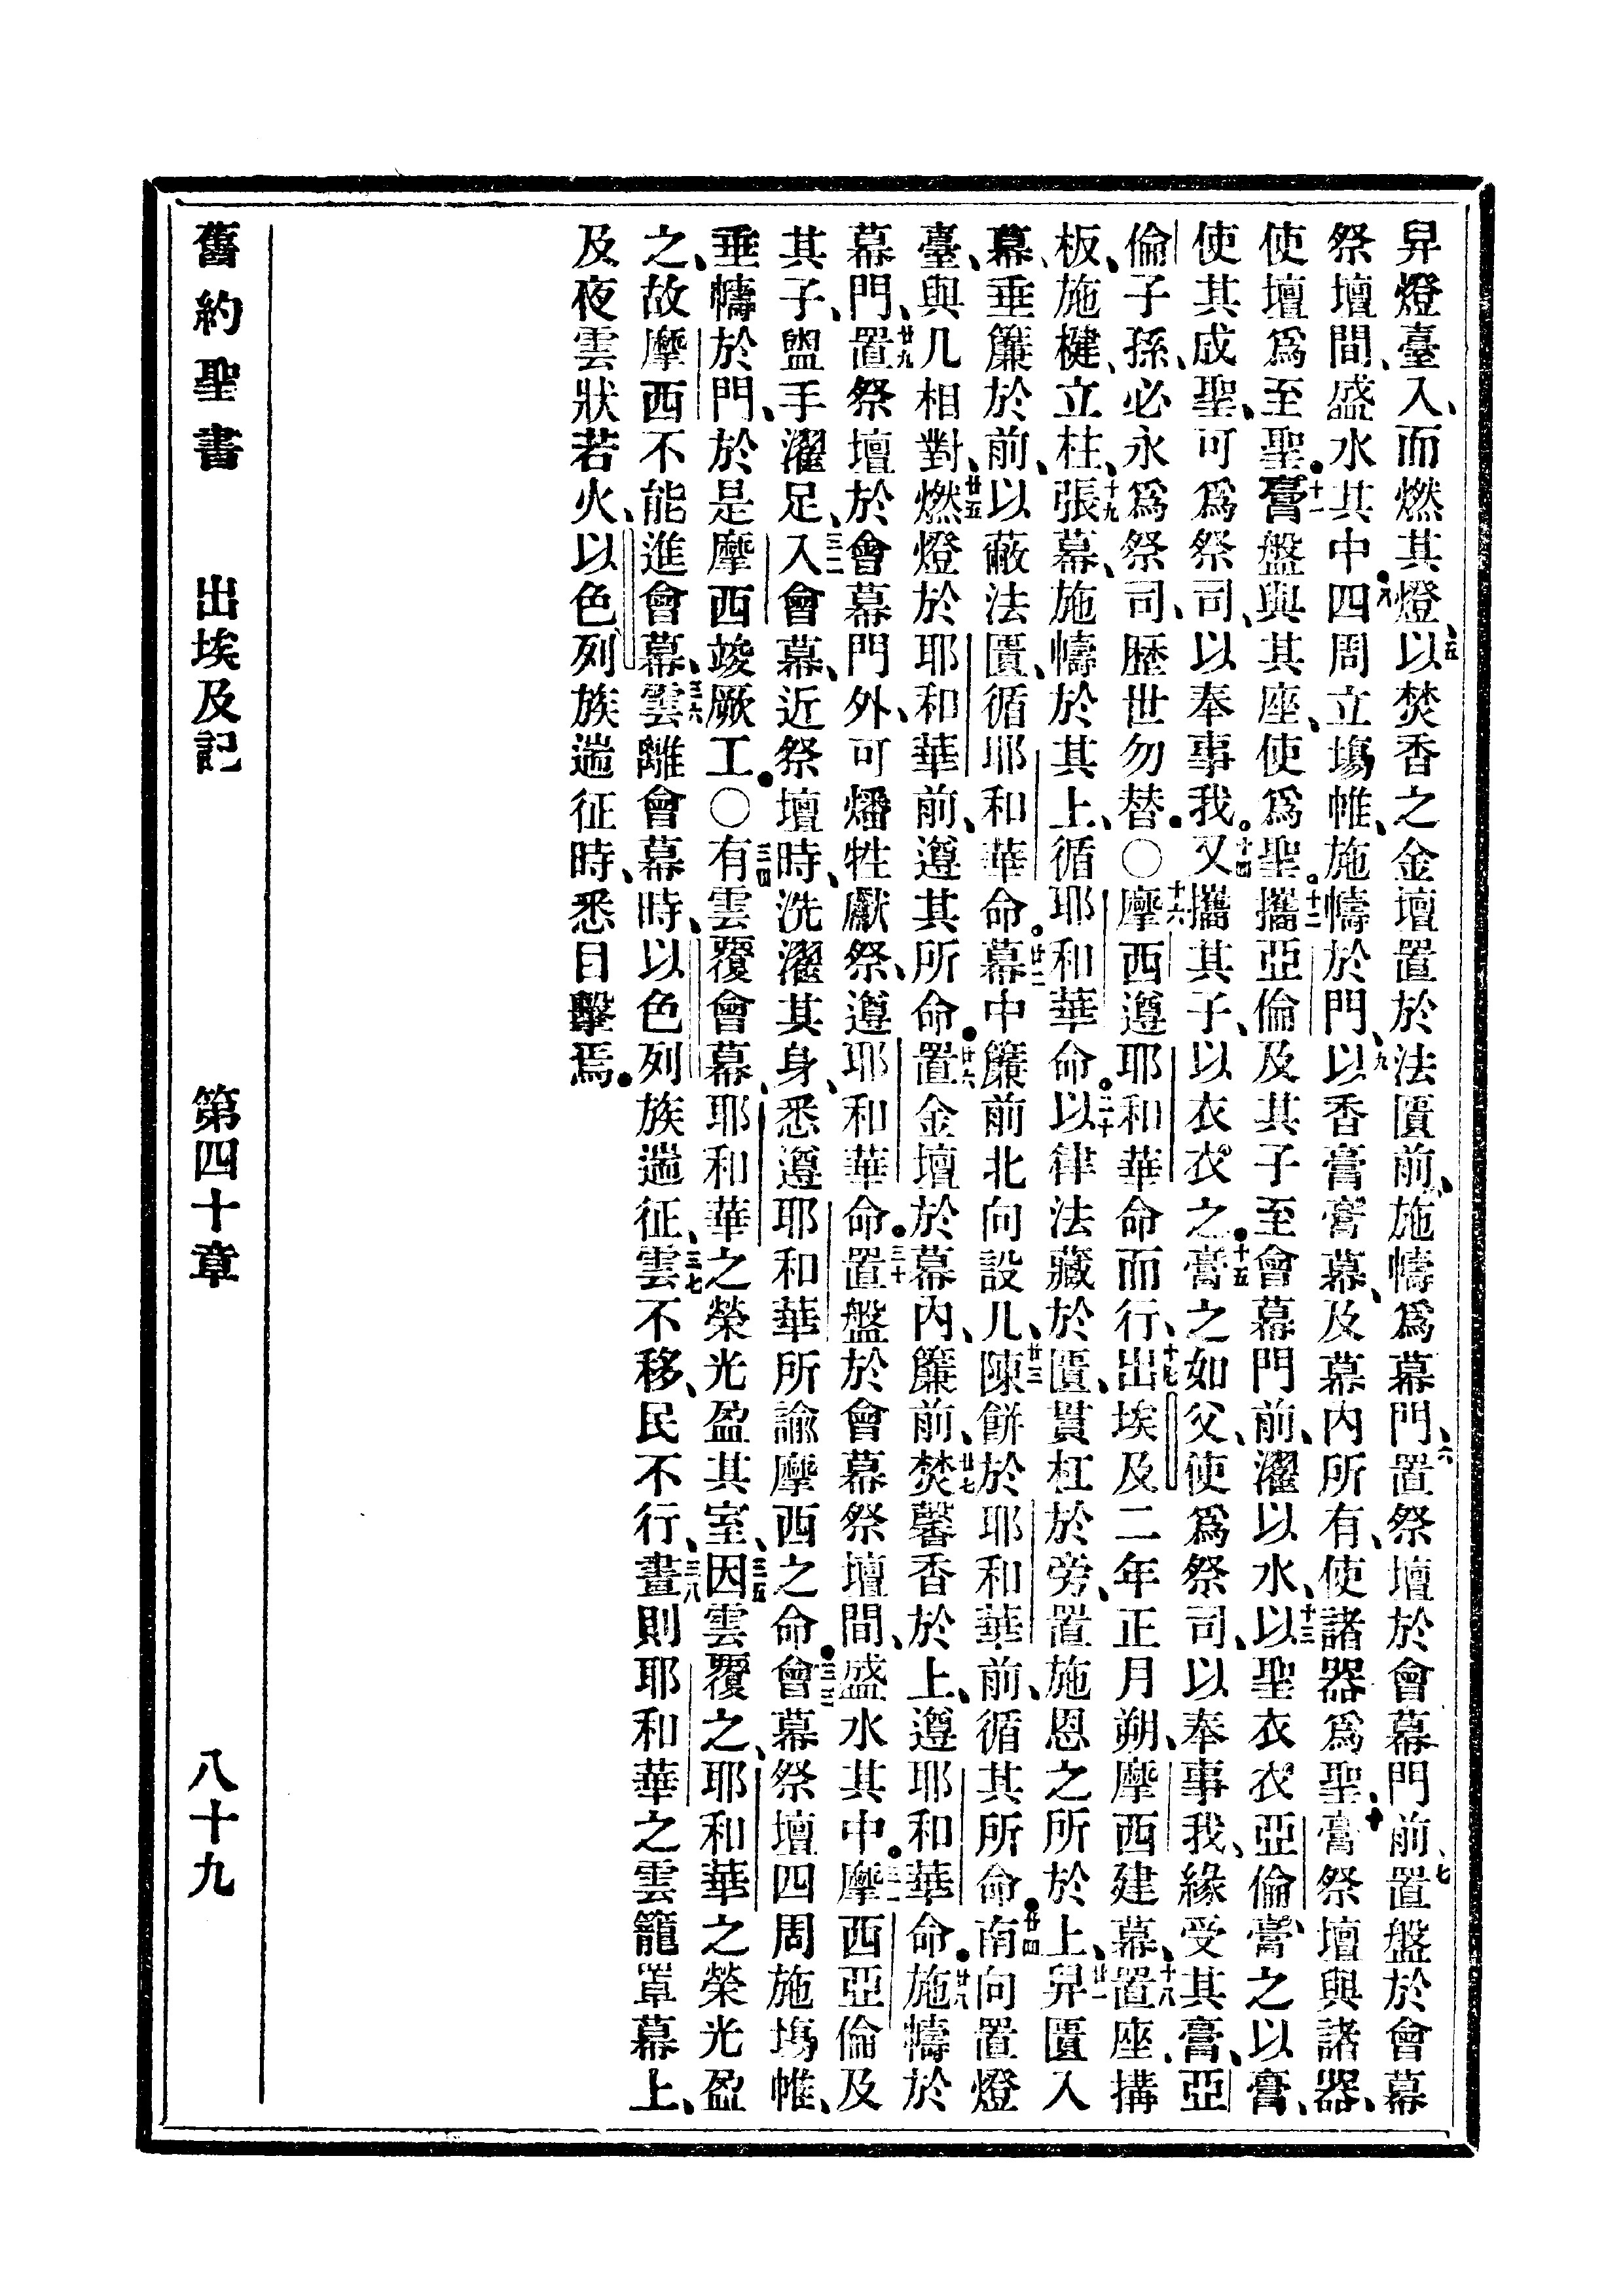 舁燈臺入、而燃其燈、五以焚香之金壇置於法匱前、施幬爲幕門、六置祭壇於會幕門前、七置盤於會幕
祭壇間、盛水其中、八四周立場帷、施幬於門、九以香膏膏幕、及幕內所有、使諸器爲聖、十膏祭壇與諸器、
使壇爲至聖。十一膏盤與其座、使爲聖。十二攜亞倫及其子至會幕門前、濯以水、十三以聖衣衣亞倫、膏之以膏、
使其成聖、可爲祭司、以奉事我。十四又攜其子、以衣衣之。十五膏之如父、使爲祭司、以奉事我、緣受其膏、亞
倫子孫、必永爲祭司、歷世勿替。〇十六摩西遵耶和華命而行、十七出埃及二年正月朔、摩西建幕、十八置座、搆
板、施楗、立柱、十九張幕、施幬於其上、循耶和華命。二十以律法藏於匱、貫杠於旁、置施恩之所於上、廿一舁匱入
幕、垂簾於前、以蔽法匱、循耶和華命。廿二幕中簾前北向設几、廿三陳餅於耶和華前、循其所命。廿四南向置燈
臺、與几相對、廿五燃燈於耶和華前、遵其所命。廿六置金壇於幕內、簾前、廿七焚馨香於上、遵耶和華命。廿八施幬於
幕門、廿九置祭壇於會幕門外、可燔牲獻祭、遵耶和華命。三十置盤於會幕祭壇間、盛水其中。三一摩西亞倫及
其子、盥手濯足、三二入會幕、近祭壇時、洗濯其身、悉遵耶和華所諭摩西之命。三三會幕祭壇四周施場帷、
垂幬於門、於是摩西竣厥工。〇三四有雲覆會幕、耶和華之榮光盈其室、三五因雲覆之、耶和華之榮光盈
之、故摩西不能進會幕、三六雲離會幕時、以色列族遄征、三七雲不移、民不行、三八晝則耶和華之雲籠罩幕上、
及夜雲狀若火、以色列族遄征時、悉目擊焉。
舊約聖書 出埃及記 第四十章 八十九